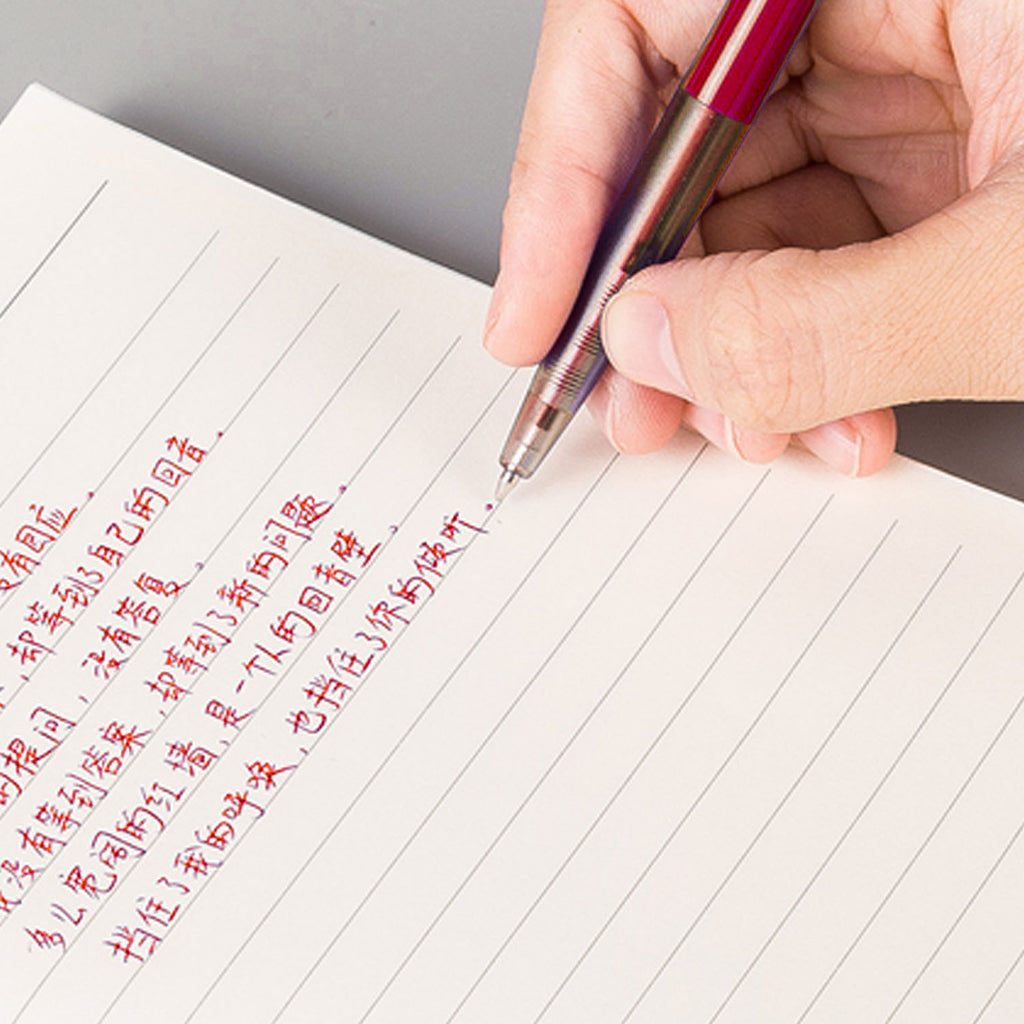 没有回应。
，却等到了自己的回音。
的提问，没有答复。
我没有等到答案，却等到了新的问题。
多么宽阔的红墙，是一个人的回音壁。
挡住了我的呼唤，也挡住了你的倾听。